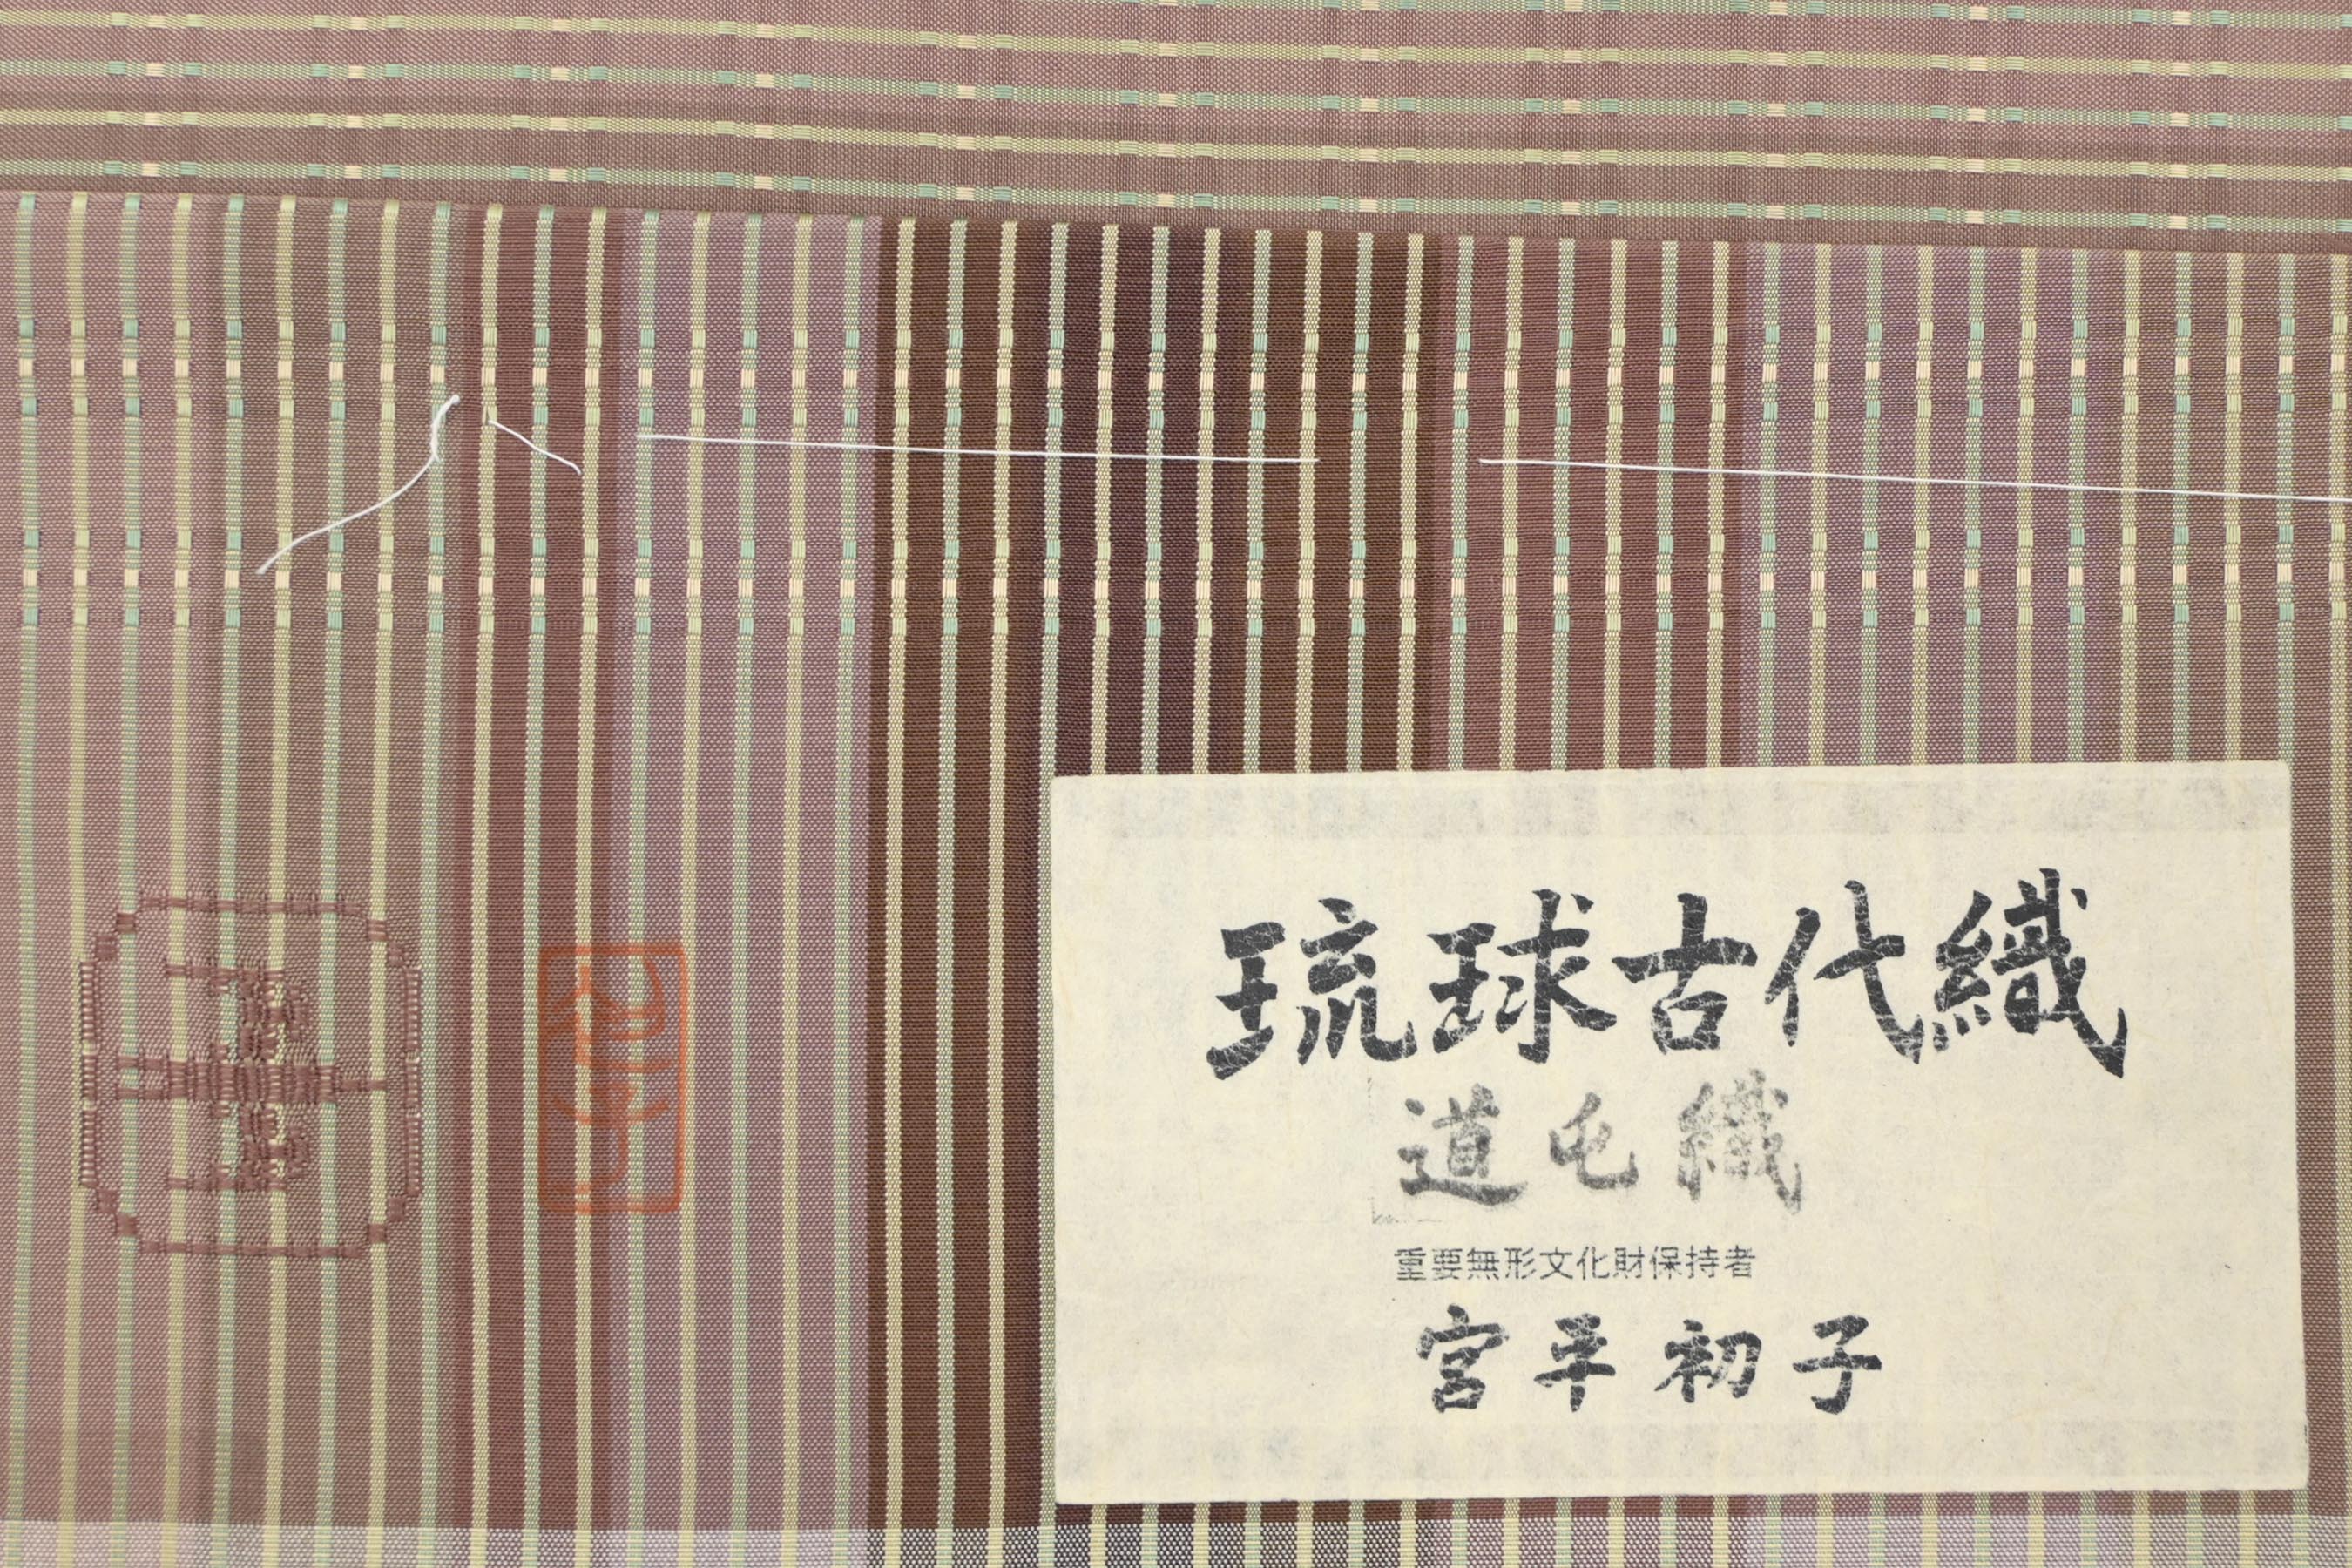 琉球古代織
道屯織
重要無形文化財保持者
宮平初子